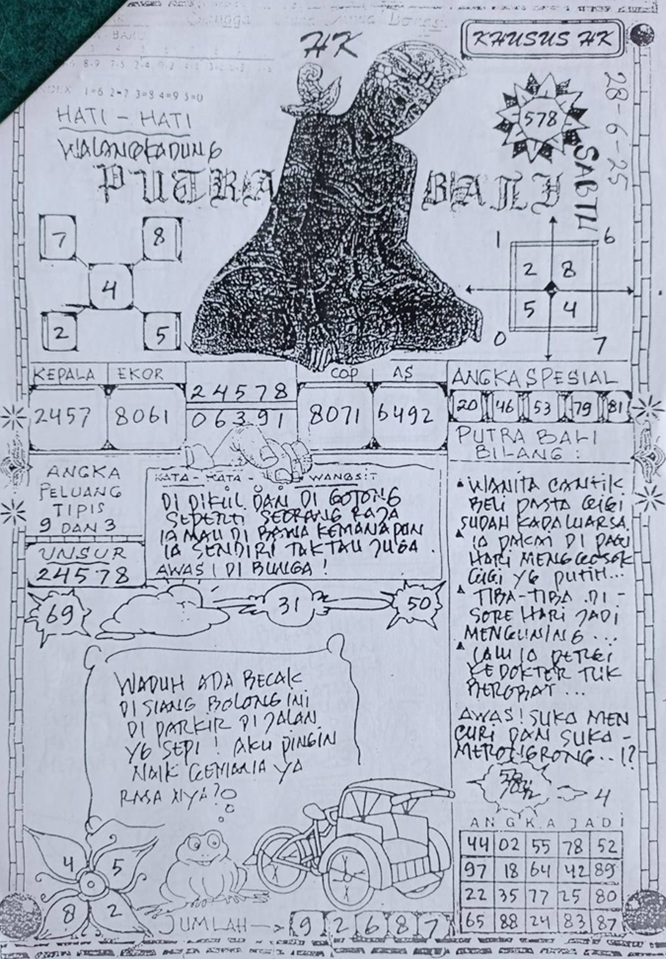 HK
KHUSUS HK
1=6 2=7 3=8 4=9 5=0
HATI - HATI
WALANGKADUNG
PUTRA BALI
578
28-6-25
SABTU
7 8
4
2 5
1 6
2 8
5 4
0 7
KEPALA EKOR
2457 8061
24578
06391
COP AS
8071 6492
ANGKA SPESIAL
20 46 53 79 81
PUTRA BALI
BILANG :
ANGKA
PELUANG
TIPIS
9 DAN 3
UNSUR
24578
KATA - KATA - WANGSIT
DI PIKUL DAN DI GOTONG
SEPERTI SEORANG RAJA
IA MAU DI BAWA KEMANAPUN
IA SENDIRI TAKTAU JUGA.
AWAS! DI BUNGA!
WANITA CANTIK
BELI PASTA GIGI
SUDAH KADALUARSA.
IA PAKAI DI PAGI
HARI MENGGOSOK
GIGI YG PUTIH...
TIBA-TIBA DI -
SORE HARI JADI
MENGUNING...
LALU IA PERGI
KEDOKTER TUK
BEROBAT...
AWAS! SUKA MEN
CURI DAN SUKA -
69
31
50
WADUH ADA BECAK
DI SIANG BOLONG INI
DI PARKIR DI JALAN
YG SEPI! AKU PINGIN
NAIK GEMANA YA
RASA NYA?
4
4 5
8 2
JUMLAH → 9 2 6 8 7
ANGKA JADI
44 02 55 78 52
97 18 64 42 89
22 35 77 25 80
65 88 24 83 87